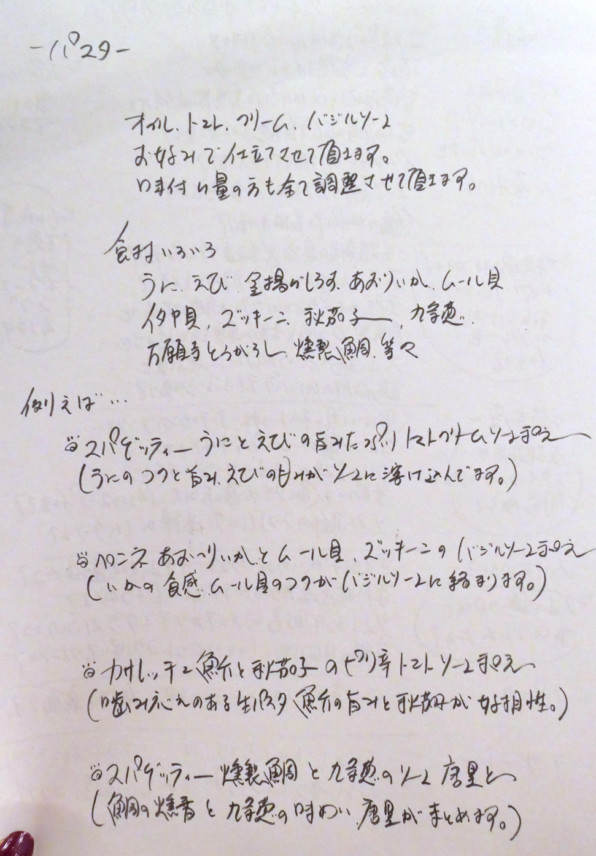 -パスタ-
オイル、トマト、クリーム、バジルソース
お好みで仕立てさせて頂きます。
味付け量の方も全て調整させて頂きます。
食材いろいろ
うに、えび、釜揚げしらす、あおりいか、ムール貝
イタヤ貝、ズッキーニ、秋茄子、九条葱、
万願寺とうがらし、燻製鯛、等々
例えば…
スパゲッティー うにとえびの旨みたっぷりトマトクリームソース和え
(うにのコクと旨み、えびの旨みがソースに溶け込んでます。)
ペンネ あおりいかとムール貝、ズッキーニのバジルソース和え
(いかの食感、ムール貝のコクがバジルソースに絡まります。)
カサレッチェ 魚介と秋茄子のピリ辛トマトソース和え
(噛み応えのある生パスタ、魚介の旨みと秋茄子が好相性。)
スパゲッティー 燻製鯛と九条葱のソース 唐墨と
(鯛の燻香と九条葱の味わい、唐墨がまとめます。)